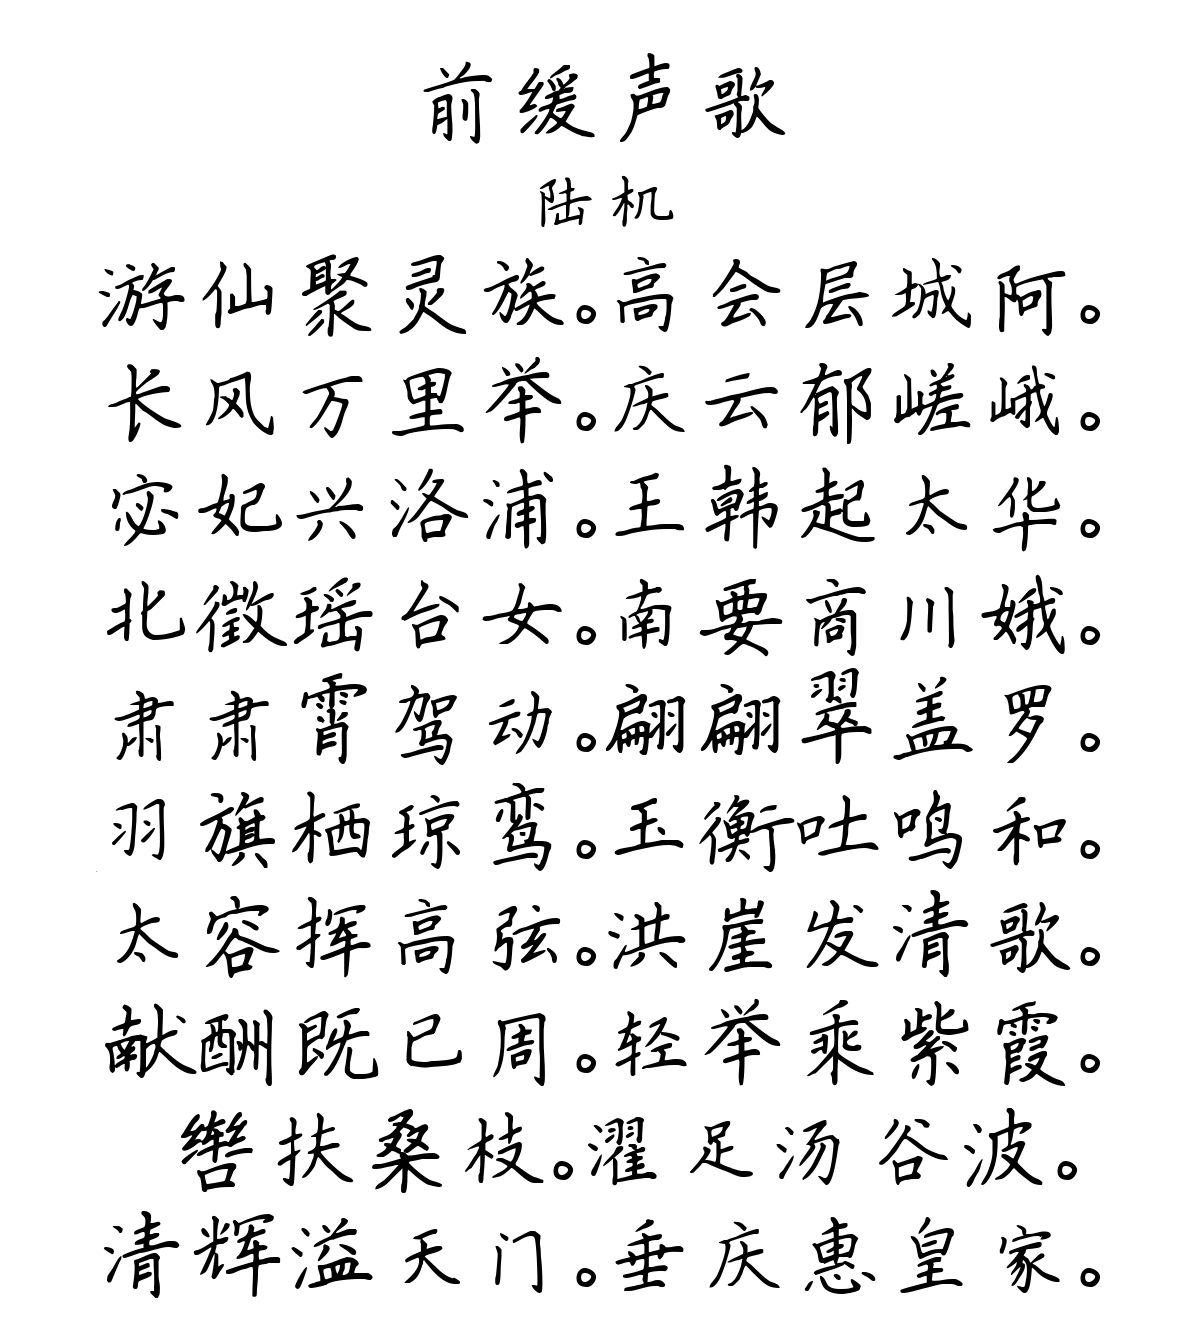 前缓声歌
陆机
游仙聚灵族。高会层城阿。
长风万里举。庆云郁嵯峨。
宓妃兴洛浦。王韩起太华。
北徵瑶台女。南要商川娥。
肃肃霄驾动。翩翩翠盖罗。
羽旗栖琼鸾。玉衡吐鸣和。
太容挥高弦。洪崖发清歌。
献酬既已周。轻举乘紫霞。
辔扶桑枝。濯足汤谷波。
清辉溢天门。垂庆惠皇家。